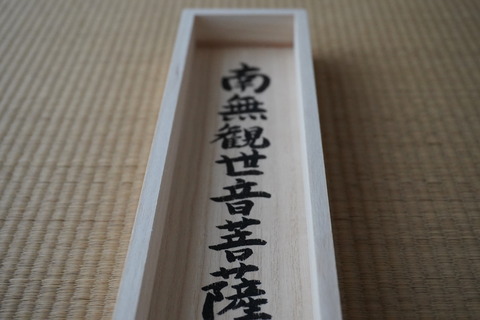 南無観世音菩薩